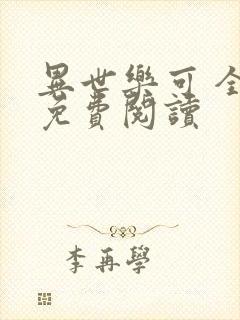 異世樂可全
免費閱讀
李再學